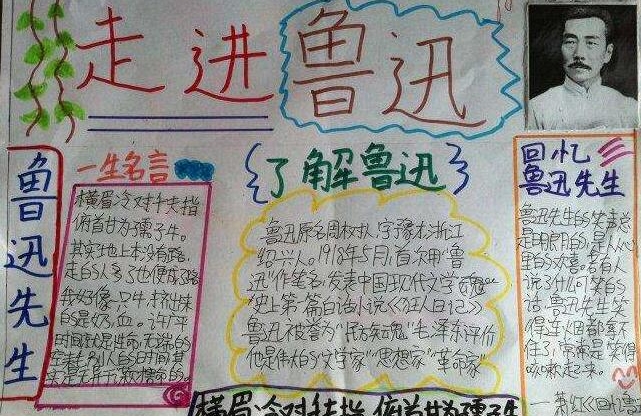 走进鲁迅
鲁迅先生
一生名言
横眉冷对千夫指
俯首甘为孺子牛。
其实地上本没有路,
走的人多了也便成了路
我好像一只牛,挤出来
的是奶,血。许广平
时间就是生命,无端的
空耗别人的时间,其
实是无异于谋财害命的。
了解鲁迅
鲁迅原名周树人,字豫才,浙江
绍兴人。1918年5月,首次用“鲁
迅”作笔名,发表中国现代文学
史上第一篇白话小说《狂人日记》
鲁迅被誉为“民族魂”毛泽东评价
他是伟大的“文学家”“思想家”“革命家”
回忆
鲁迅先生
鲁迅先生的笑声
是明朗的,是从心
里的欢喜。若有人
说了什么可笑的
话,鲁迅先生笑
得连烟都拿不
住了,常常是笑得
咳嗽起来。
横眉冷对千夫指,俯首甘为孺子牛